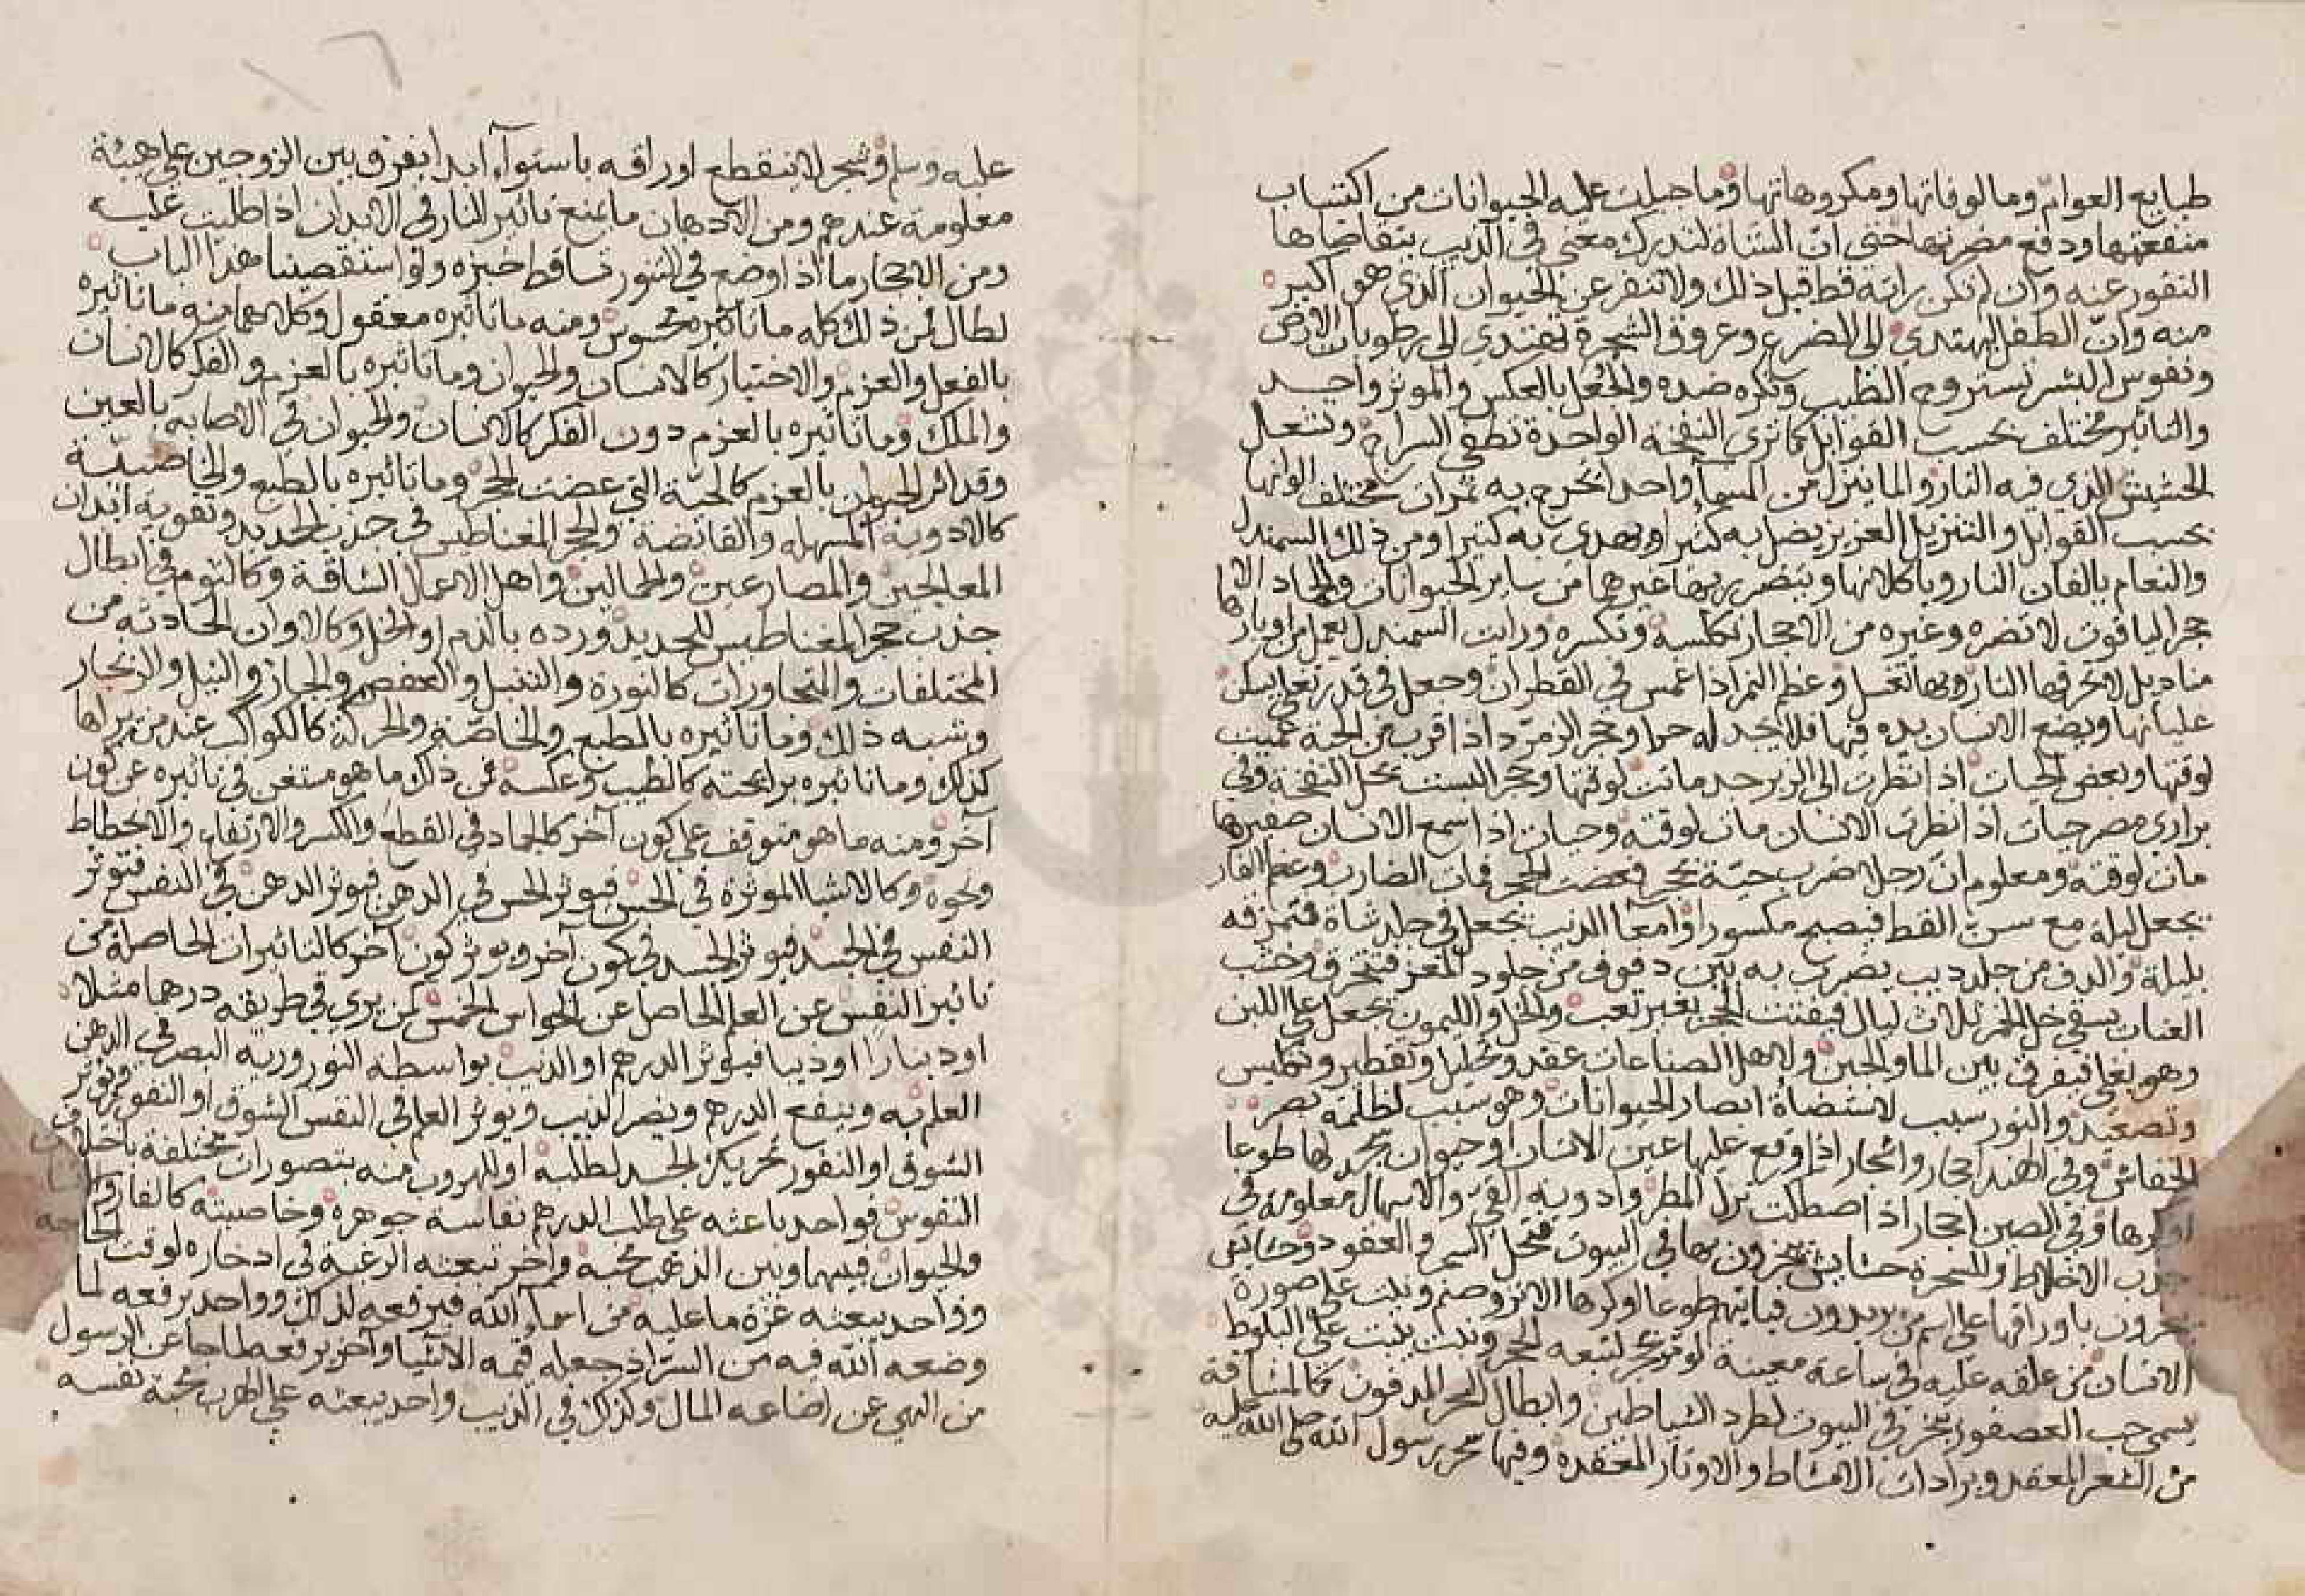 طبايع العوالم ومالوفاتها ومكروهاتها وما جبلت عليه الحيوانات من اكتساب
منفعتها ودفع مضرتها حتى ان الشاة لتدرك معنى في الذيب يتقاضاها
النفور عنه وان لم تكن راته قط قبل ذلك ولا تنفر عن الحيوان الذي هو اكبر
منه وان الطفل يهتدي الى الضرع وعروق الشجرة تهتدي الى رطوبات الارض
ونفوس البشر تستروح الطيب وتكره ضده والجعل بالعكس والموثر واحد
والتاثير مختلف بحسب القوابل كما ترى النفخة الواحدة تطفي السراج وتشعل
الحشيش الذي فيه النار والما ينزل من السما واحدا يخرج به ثمرات مختلف الوانها
بحسب القوابل والتنزيل العزيز يضل به كثيرا ويهدي به كثيرا ومن ذلك السمندل
والنعام يالفان النار وياكلانها ويتضرر بها غيرهما من ساير الحيوانات والجماد
حجر الياقوت لا تضره وغيره من الاحجار تكلسه وتكسره ورايت السمندل يعمل من اوبارها
مناديل لا تحرقها النار وبها تغسل وعظم النمر اذا غمس في القطران وجعل في قدر تغلي سكن
غليانها ويضع الانسان يده فيها فلا يجد له حرا وحجر الزمرد اذا قرب من الحية عميت
لوقتها وبعض الحيات اذا نظرت الى الزبرجد ماتت لوقتها وحجر البست يحل النفخة وفي
براري مصر حيات اذا نظرت الانسان مات لوقته وحيات اذا سمع الانسان صفيرها
مات لوقته ومعلوم ان رجلا ضرب حية بحجر فعضت الحجر فمات الضارب وعظم الفار
يجعل ليلة مع سن القط فيصبح مكسورا وامعا الذيب يجعل في جلد شاة فتمزقه
بليلة والدف من جلد ديب يضرب به بين دفوف من جلود المعز فتتخرق وخشب
العناب يسقى خل الخمر ثلاث ليال فيفتت الحجر بغير تعب والخل والليمون يجعل على اللبن
وهو يغلي فيفرق بين الما والجبن ولاهل الصناعات عقد وتحليل وتقطير وتكليس
وتصعيد والنور سبب لاستضاة ابصار الحيوانات وهو سبب لظلمة بصر
الخفاش وفي الهند احجار واشجار اذا وقع عليها عين الانسان او حيوان يخر لها طوعا
او كرها وفي الصين احجار اذا اصطكت نزل المطر وادوية القي والاسهال معلومة في
جذب الاخلاط وللسحرة حشايش يبخرون بها في البيوت فتحل السحر والعقود وحشايش
يبخرون باوراقها على اسم من يريدون فياتيهم طوعا او كرها ونبت على صورة
الانسان من علقه عليه في ساعة معينة لتبعه الحجر ونبت ينبت على البلوط
يسمى حب العصفور يبخر في البيوت لطرد الشياطين وابطال السحر المدفون كالمشاقة
من الشعر المعقد وبرادات الامشاط والاوتار المعقدة وفيها سحر رسول الله صلى الله عليه
عليه وسلم وشجر لا ينقطع اوراقه باستواء ابدا يفرق بين الزوجين على هيئة
معلومة عندهم ومن الادهان ما يمنع تاثير النار في الابدان اذا طليت عليه
ومن الاحجار ما اذا وضع في التنور تساقط خبزه ولو استقصينا هذا الباب
لطال فمن ذلك كله ما تاثيره محسوس ومنه ما تاثيره معقول وكلاهما منه ما تاثيره
بالفعل والعزم والاختيار كالانسان والحيوان وما تاثيره بالعزم والفكر كالانسان
والملك وما تاثيره بالعزم دون الفكر كالانسان والحيوان في الاصابة بالعين
وقد اثر الحيوان بالعزم كالحية التي عضت الحجر وما تاثيره بالطبع والخاصية
كالادوية المسهلة والقابضة والحجر المغناطيس في جذب الحديد وتقوية ابدان
المعالجين والمصارعين والحمالين واهل الاعمال الشاقة وكالثوم في ابطال
جذب حجر المغناطيس للحديد ورده بالدم او الخل وكالالوان الحادثة من
المختلفات والمتجاورات كالنورة والعفص والجاز والنيل والزنجار
وشبه ذلك وما تاثيره بالطبع والخاصة والحركة كالكواكب عند من يراها
كذلك وما تاثيره برايحته كالطيب وعكسه فمن ذلك ما هو مستغن في تاثيره عن كون
آخر ومنه ما هو متوقف على كون آخر كالجماد في القطع والكسر والارتفاع والانحطاط
ونحوه وكالاشيا الموثرة في الحس فيوثر الحس في الدهن فيوثر الدهن في النفس فتوثر
النفس في الجسد فيوثر الجسد في كون آخر ويوثر كون آخر كالتاثيرات الحاصلة من
تاثير النفس عن العلم الحاصل عن الحواس الخمس كمن يري في طريقه درهما مثلا
او دينارا او ديبا فيوثر الدرهم او الذيب بواسطة النور ورية البصر في الدهن
العلم به وينفع الدرهم ويضر الذيب ويوثر العلم في النفس الشوق او النفور ويوثر
الشوق او النفور تحريك الجسد لطلبه او الهروب منه بتصورات مختلفة باختلاف
النفوس فواحد باعثه على طلب الدرهم نفاسة جوهره وخاصيته كالفار
والحيوان فبينهما وبين الذهب محبة وآخر تبعثه الرغبة في ادخاره لوقت الحاجة
وواحد يبعثه عزة ما عليه من اسماء الله فيرفعه لذلك وواحد يرفعه لما
وضعه الله فيه من السر اذ جعله قيمة الاشيا وآخر يرفعه لما جا عن الرسول
من النهي عن اضاعة المال وكذلك في الذيب واحد يبعثه على الهرب محبة نفسه